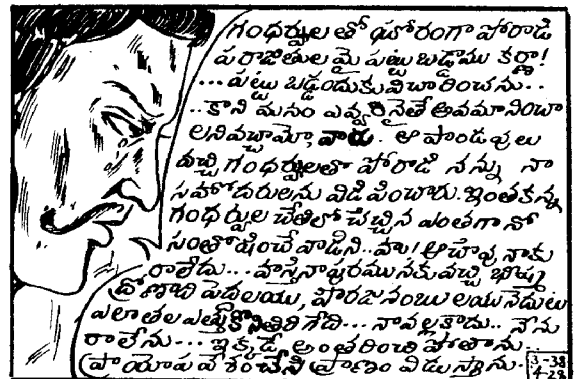 గంధర్వులతో ఘోరంగా పోరాడి
పరాజితులమై పట్టుబడ్డాము కర్ణా!
...పట్టుబడ్డందుకు విచారించను..
..కాని మనం ఎవ్వరినైతే అవమానించా
లనివచ్చామో, వారు. ఆ పాండవులు
వచ్చి గంధర్వులతో పోరాడి నన్ను నా
సహోదరులను విడిపించారు. ఇంతకన్న
గంధర్వుల చేతిలో చచ్చిన ఎంతగానో
సంతోషించే వాడిని.. హా! ఆ చావు నాకు
రాలేదు... హస్తినాపురమునకు వచ్చి భీష్మ
ద్రోణాది పెదలయు, పౌరజనంబులయునెదుట
ఎలా తల ఎత్తుకొని తిరిగేది... నావల్లకాదు.. నేను
రాలేను... ఇక్కడే అంతరించి పోతాను..
ప్రాయోపవేశం చేసి ప్రాణం విడుస్తాను.
3-38
4-28